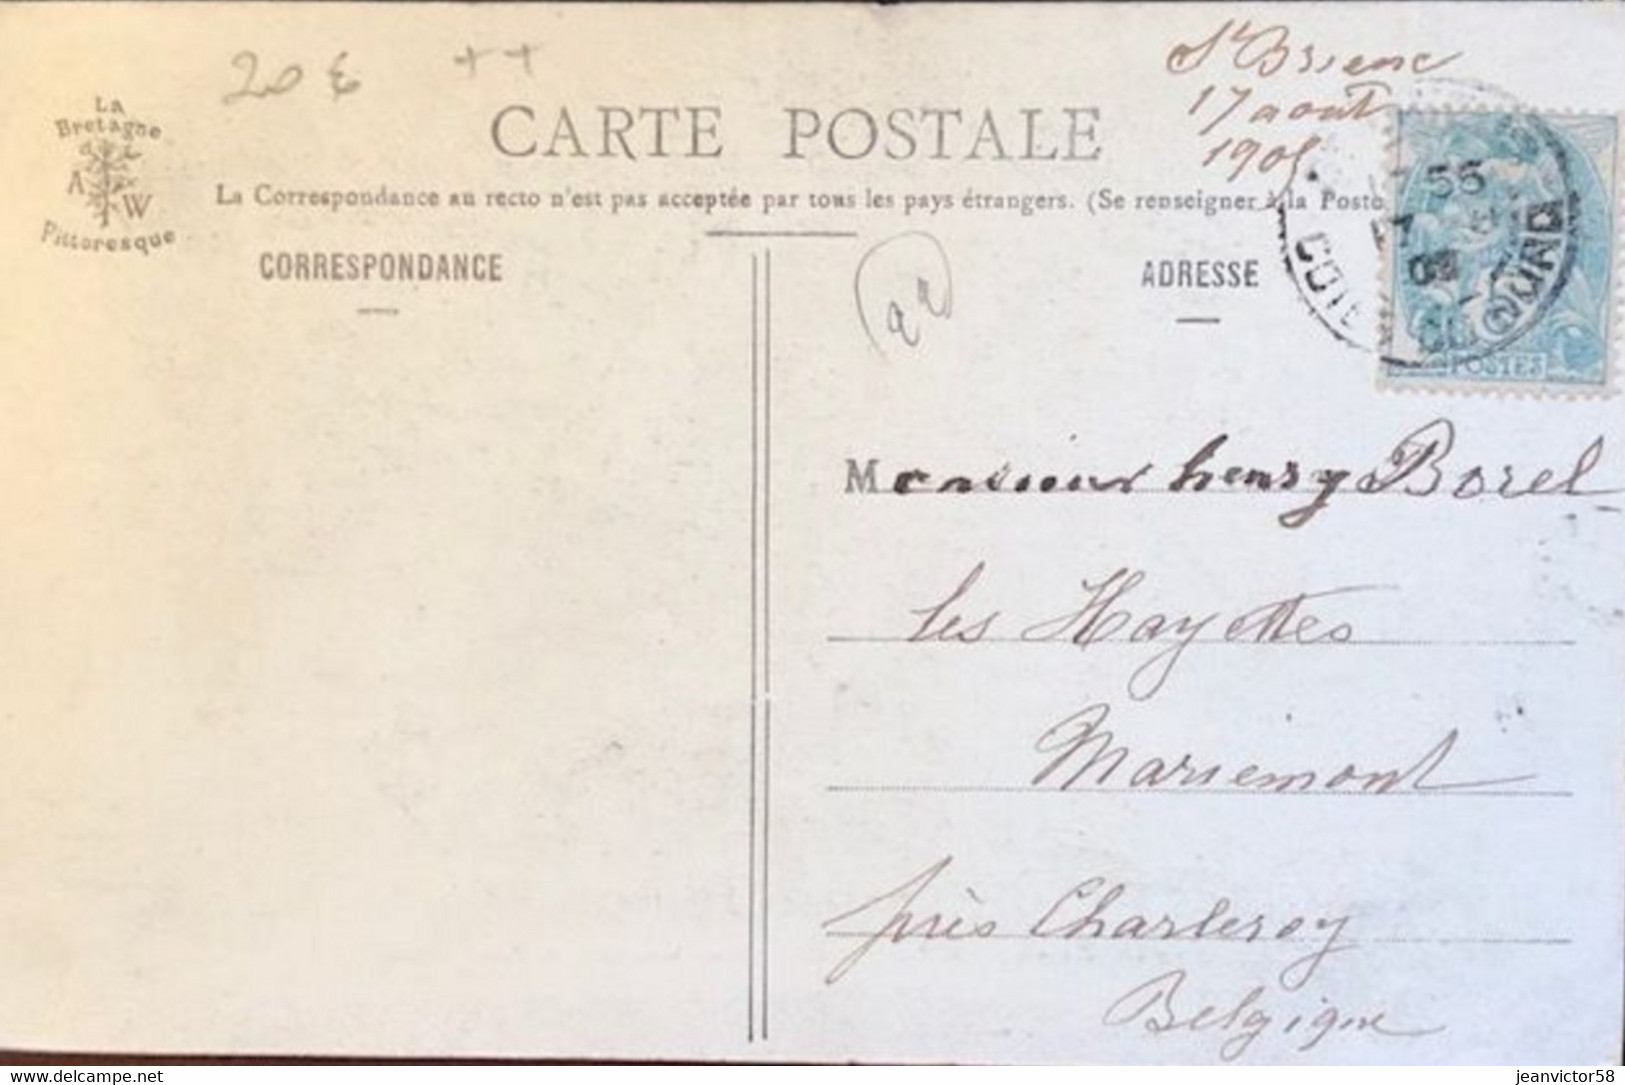 20 € ++
St Brieuc
17 aout
1905
La
Bretagne
A W
Pittoresque
CARTE POSTALE
La Correspondance au recto n'est pas acceptée par tous les pays étrangers. (Se renseigner à la Poste
CORRESPONDANCE
ADRESSE
COTE DU NORD
POSTES
Monsieur henry Borel
les Hayettes
Mariemont
près Charleroy
Belgique
jeanvictor58